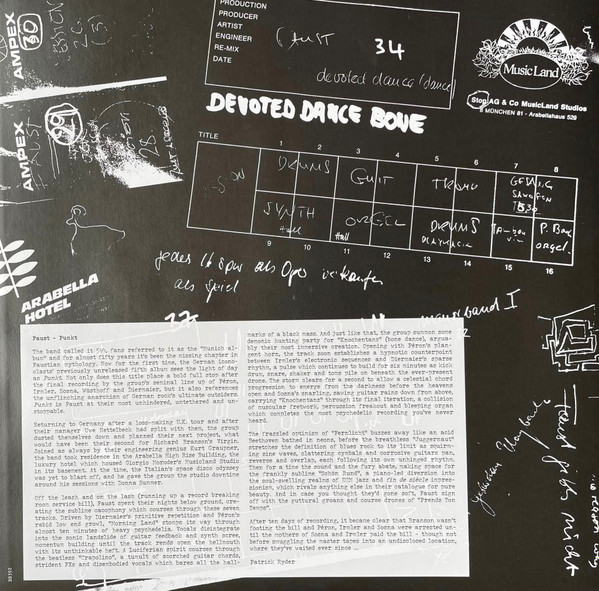 AMPEX
30
PRODUCTION
PRODUCER
ARTIST
ENGINEER
RE-MIX
DATE
Faust
34
devoted dance (dance)
MusicLand
Stop AG & Co MusicLand Studios
8 MÜNCHEN 81 - Arabellahaus 529
DEVOTED DANCE BONE
AMPEX
29
FAUST
TITLE
1 2 3 4 5 6 7 8
DRUMS
GUIT
SYNTH
Hall
ORGEL
Hall
DRUMS
P. Box
orgel
9 10 11 12 13 14 15 16
jedes 16 Spur als Oper verkaufen
als Spiel
ARABELLA
HOTEL
Faust - Punkt
The band called it 5½, fans referred to it as the "Munich al-
bum" and for almost fifty years it's been the missing chapter in
Faustian mythology. Now for the first time, the German icono-
clasts' previously unreleased fifth album sees the light of day
as Punkt. Not only does this title place a bold full stop after
the final recording by the group's seminal line up of Péron,
Irmler, Sosna, Wüsthoff and Diermaier, but it also references
the unflinching anarchism of German rock's ultimate outsiders.
Punkt is Faust at their most unhindered, untethered and un-
stoppable.
Returning to Germany after a loss-making U.K. tour and after
their manager Uwe Nettelbeck had split with them, the group
dusted themselves down and planned their next project, what
would have been their second for Richard Branson's Virgin.
Joined as always by their engineering genius Kurt Graupner,
the band took residence in the Arabella High Rise Building, the
luxury hotel which housed Giorgio Moroder's Musicland Studio
in its basement. At the time, the Italian's space disco odyssey
was yet to blast off, and he gave the group the studio downtime
around his sessions with Donna Summer.
Off the leash and on the lash (running up a record breaking
room service bill), Faust spent their nights below ground, cre-
ating the sublime cacophony which courses through these seven
tracks. Driven by Diermaier's primitive repetition and Péron's
rabid low end growl, "Morning Land" stomps its way through
almost ten minutes of heavy psychedelia. Vocals disintegrate
into the sonic landslide of guitar feedback and synth scree,
momentum building until the track rends open the hellmouth
with its unthinkable heft. A Luciferian spirit courses through
the beatless "Crapolino", a tumult of scorched guitar chords,
strident FXs and disembodied vocals which bares all the hall-
marks of a black mass. And just like that, the group summon some
demonic hunting party for "Knochentanz" (bone dance), argua-
bly their most immersive creation. Opening with Péron's plan-
gent horn, the track soon establishes a hypnotic counterpoint
between Irmler's electronic sequences and Diermaier's sparse
rhythm, a pulse which continues to build for six minutes as kick
drum, snare, shaker and toms pile on beneath the ever-present
drone. The storm clears for a second to allow a celestial chord
progression to emerge from the darkness before the heavens
open and Sosna's snarling, sawing guitar rains down from above,
carrying "Knochentanz" through its final iteration, a collision
of muscular fretwork, percussion freakout and bleeping organ
which completes the most psychedelic recording you've never
heard.
The frazzled optimism of "Fernlicht" buzzes away like an acid
Beethoven bathed in neons, before the breathless "Juggernaut"
stretches the definition of blues rock to its limit as squirm-
ing sine waves, slattering cymbals and corrosive guitars pan,
reverse and overlap, each following its own unhinged rhythm.
Then for a time the sound and the fury abate, making space for
the frankly sublime "Schön Rund", a piano-led diversion into
the soul-swelling realms of ECM jazz and fin de siècle impres-
sionism, which rivals anything else in their catalogue for pure
beauty. And in case you thought they'd gone soft, Faust sign
off with the guttural groans and coarse drones of "Prends Ton
Temps".
After ten days of recording, it became clear that Branson wasn't
footing the bill and Péron, Irmler and Sosna were arrested un-
til the mothers of Sosna and Irmler paid the bill - though not
before smuggling the master tapes into an undisclosed location,
where they've waited ever since ...
Patrick Ryder